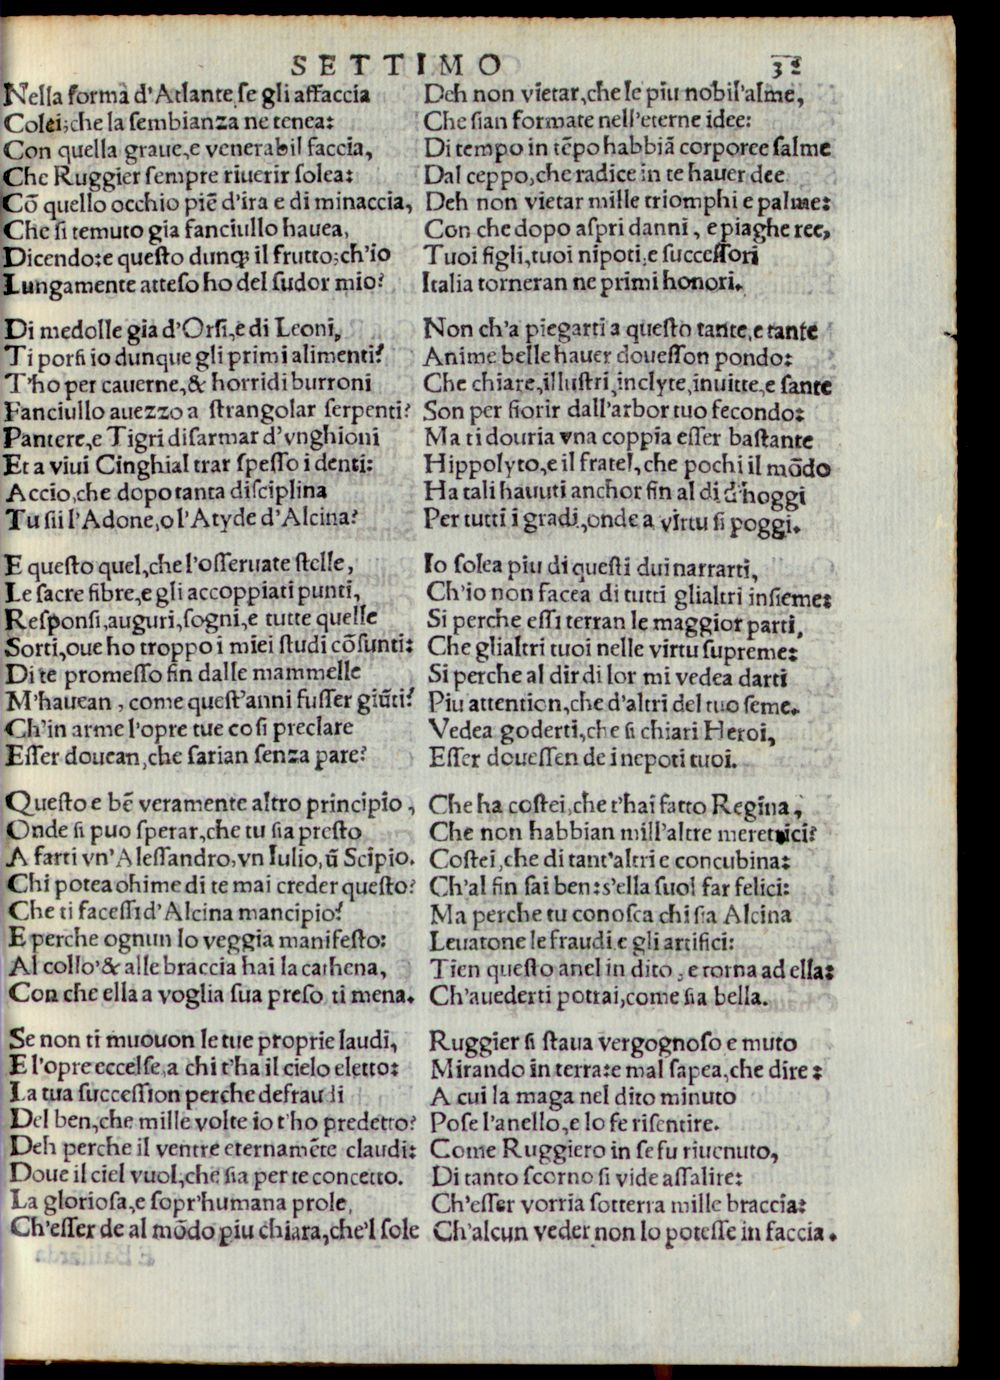 SETTIMO 32
Nella forma d'Atlante se gli affaccia
Colei, che la sembianza ne tenea:
Con quella graue, e venerabil faccia,
Che Ruggier sempre riuerir solea:
Cō quello occhio piē d'ira e di minaccia,
Che si temuto gia fanciullo hauea,
Dicendo: e questo dunqꝫ il frutto, ch'io
Lungamente atteso ho del sudor mio?
Di medolle gia d'Orsi, e di Leoni,
Ti porsi io dunque gli primi alimenti?
T'ho per cauerne, & horridi burroni
Fanciullo auezzo a strangolar serpenti?
Pantere, e Tigri disarmar d'vnghioni
Et a viui Cinghial trar spesso i denti:
Accio, che dopo tanta disciplina
Tu sii l'Adone, o l'Atyde d'Alcina?
E questo quel, che l'osseruate stelle,
Le sacre fibre, e gli accoppiati punti,
Responsi, auguri, sogni, e tutte quelle
Sorti, oue ho troppo i miei studi cōsunti:
Di te promesso fin dalle mammelle
M'hauean, come quest'anni fusser giūti?
Ch'in arme l'opre tue cosi preclare
Esser douean, che sarian senza pare?
Questo e bē veramente altro principio,
Onde si puo sperar, che tu sia presto
A farti vn'Alessandro, vn Iulio, ū Scipio.
Chi potea ohime di te mai creder questo?
Che ti facessi d'Alcina mancipio?
E perche ognun lo veggia manifesto:
Al collo' & alle braccia hai la cathena,
Con che ella a voglia sua preso ti mena.
Se non ti muouon le tue proprie laudi,
E l'opre eccelse, a chi t'ha il cielo eletto:
La tua succession perche defraudi
Del ben, che mille volte io t'ho predetto?
Deh perche il ventre eternamēte claudi:
Doue il ciel vuol, che sia per te concetto.
La gloriosa, e sopr'humana prole,
Ch'esser de al mōdo piu chiara, che'l sole
Deh non vietar, che le piu nobil'alme,
Che sian formate nell'eterne idee:
Di tempo in tēpo habbiā corporee salme
Dal ceppo, che radice in te hauer dee
Deh non vietar mille triomphi e palme:
Con che dopo aspri danni, e piaghe ree,
Tuoi figli, tuoi nipoti, e successori
Italia torneran ne primi honori.
Non ch'a piegarti a questo tante, e tante
Anime belle hauer douesson pondo:
Che chiare, illustri, inclyte, inuitte, e sante
Son per fiorir dall'arbor tuo fecondo:
Ma ti douria vna coppia esser bastante
Hippolyto, e il fratel, che pochi il mōdo
Ha tali hauuti anchor fin al di d'hoggi
Per tutti i gradi, onde a virtu si poggi.
Io solea piu di questi dui narrarti,
Ch'io non facea di tutti glialtri insieme:
Si perche essi terran le maggior parti,
Che glialtri tuoi nelle virtu supreme:
Si perche al dir di lor mi vedea darti
Piu attention, che d'altri del tuo seme.
Vedea goderti, che si chiari Heroi,
Esser douessen de i nepoti tuoi.
Che ha costei, che t'hai fatto Regina,
Che non habbian mill'altre meretrici?
Costei, che di tant'altri e concubina:
Ch'al fin sai ben: s'ella suol far felici:
Ma perche tu conosca chi sia Alcina
Leuatone le fraudi e gli artifici:
Tien questo anel in dito, e torna ad ella:
Ch'auederti potrai, come sia bella.
Ruggier si staua vergognoso e muto
Mirando in terra: e mal sapea, che dire:
A cui la maga nel dito minuto
Pose l'anello, e lo fe risentire.
Come Ruggiero in se fu riuenuto,
Di tanto scorno si vide assalire:
Ch'esser vorria sotterra mille braccia:
Ch'alcun veder non lo potesse in faccia.